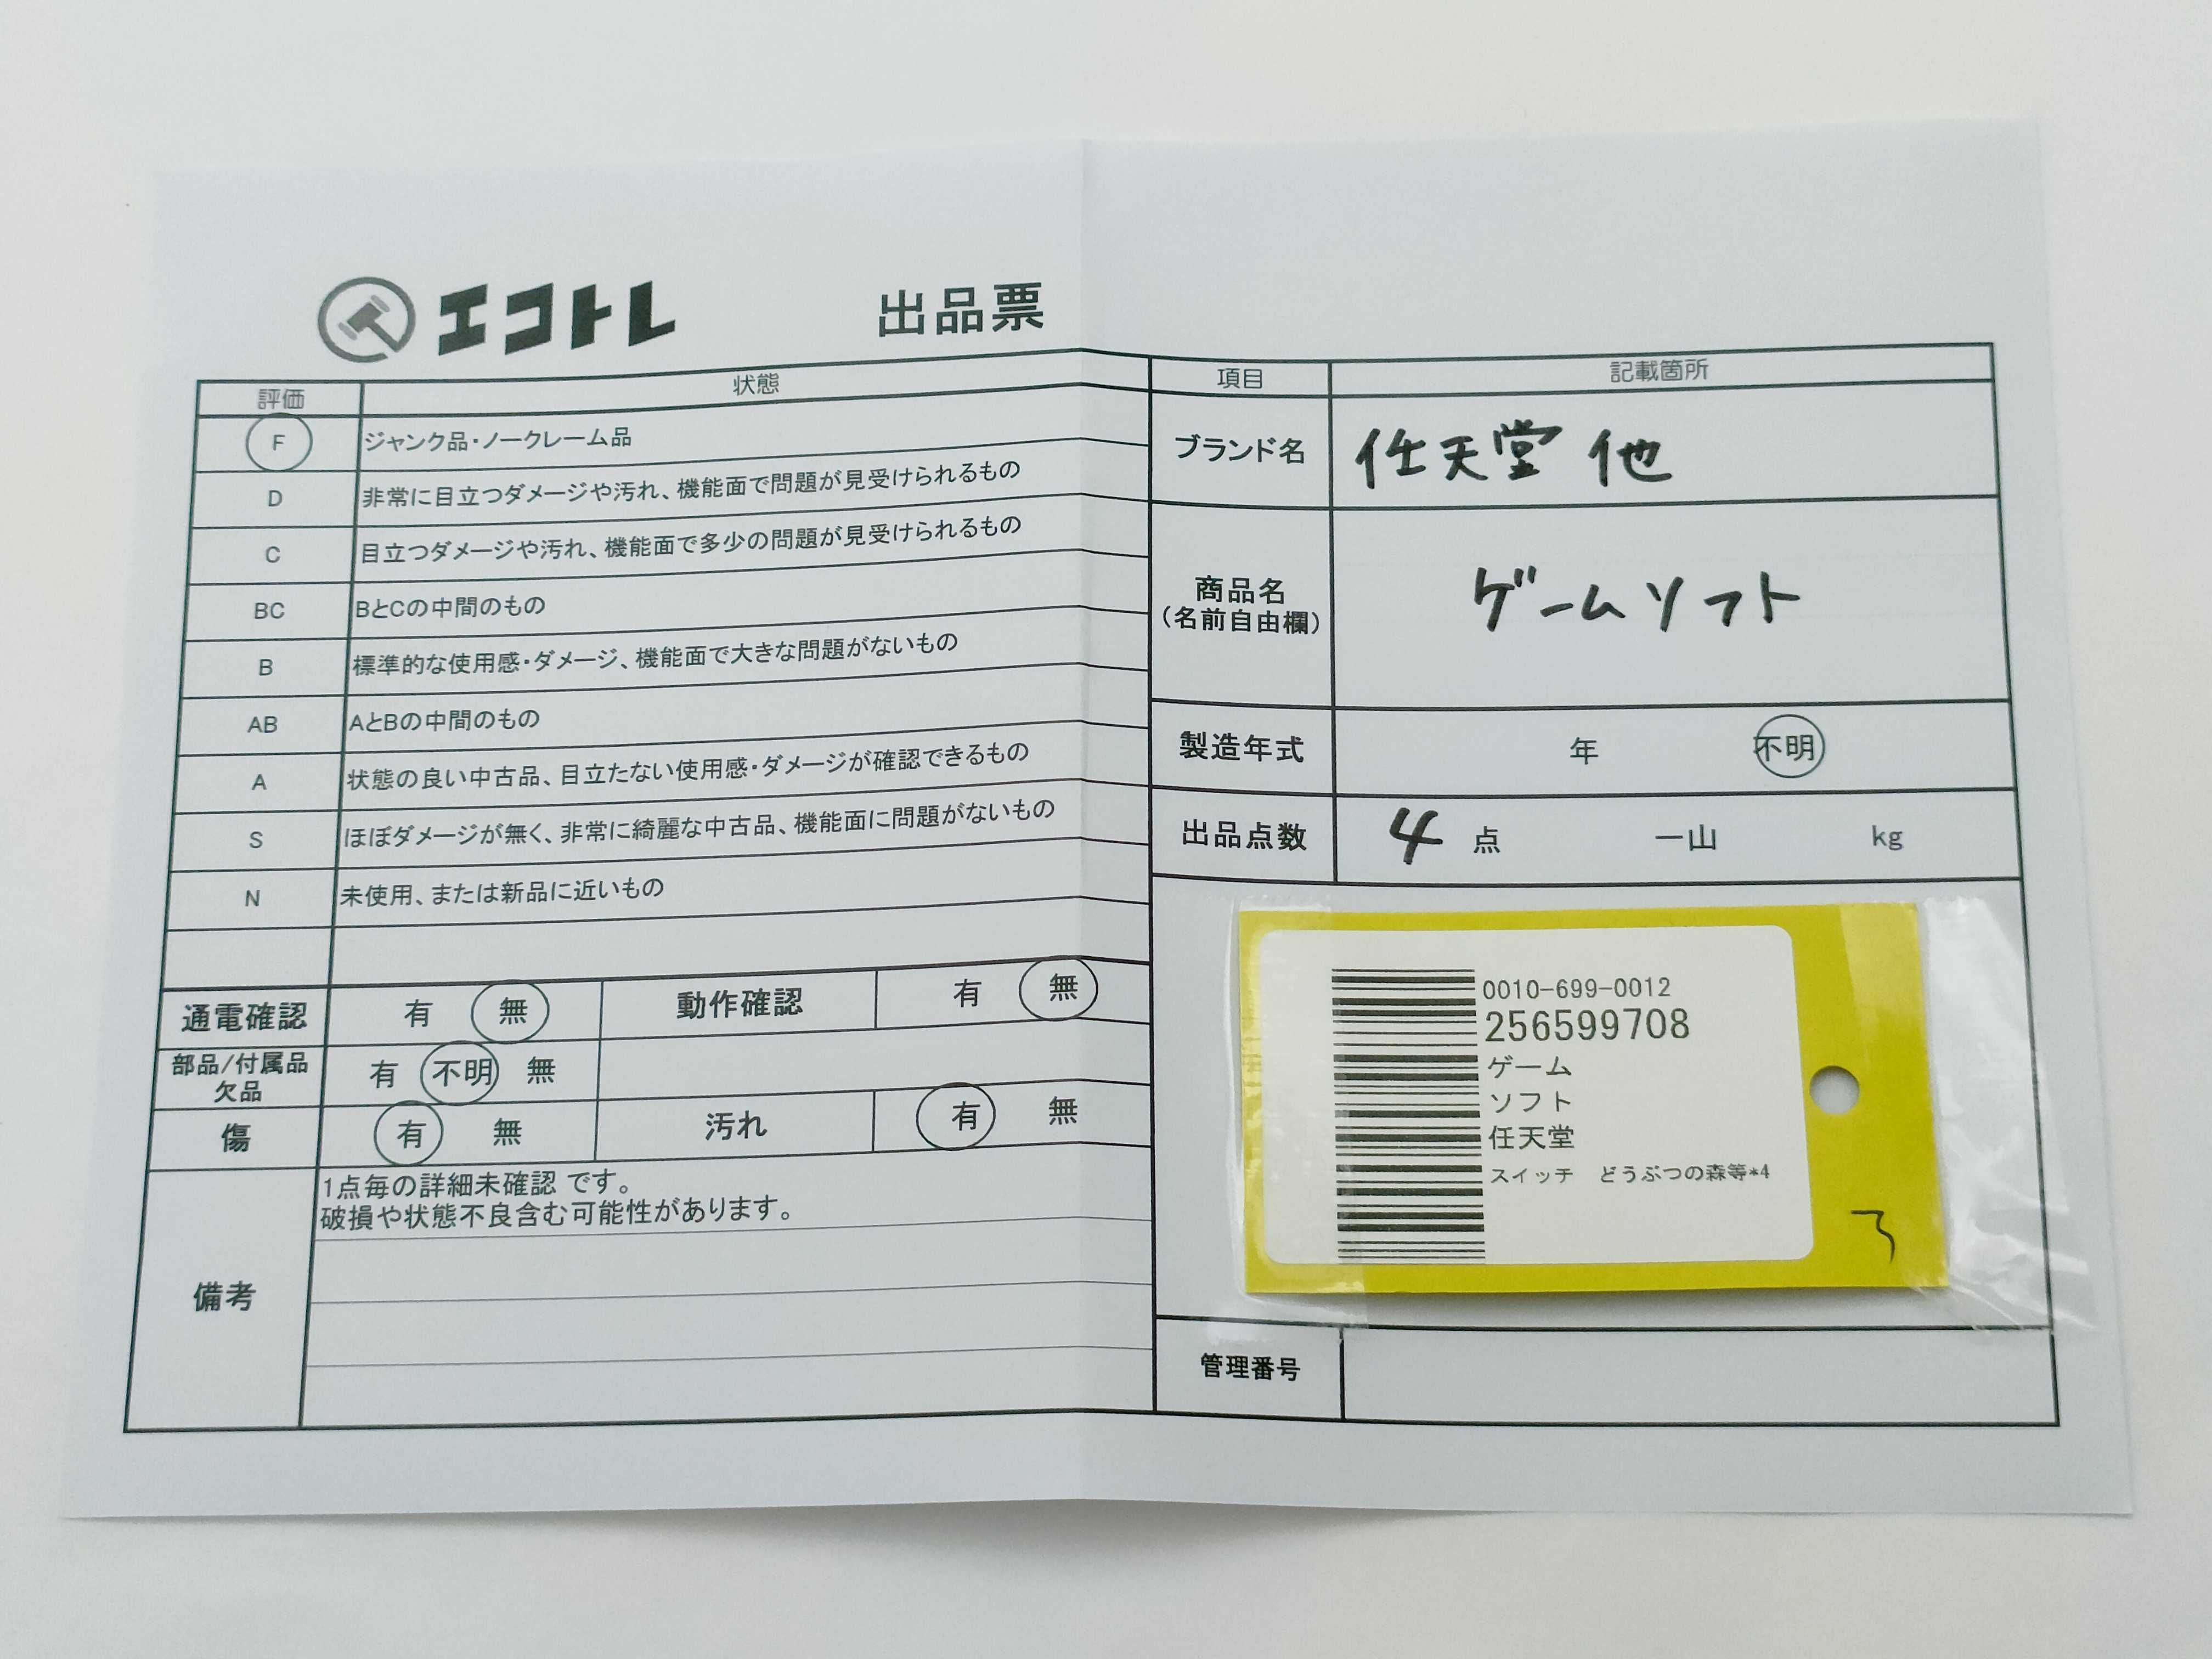 エコトレ 出品票
評価 状態
F ジャンク品・ノークレーム品
D 非常に目立つダメージや汚れ、機能面で問題が見受けられるもの
C 目立つダメージや汚れ、機能面で多少の問題が見受けられるもの
BC BとCの中間のもの
B 標準的な使用感・ダメージ、機能面で大きな問題がないもの
AB AとBの中間のもの
A 状態の良い中古品、目立たない使用感・ダメージが確認できるもの
S ほぼダメージが無く、非常に綺麗な中古品、機能面に問題がないもの
N 未使用、または新品に近いもの
通電確認 有 無 動作確認 有 無
部品/付属品
欠品 有 不明 無
傷 有 無 汚れ 有 無
備考
1点毎の詳細未確認 です。
破損や状態不良含む可能性があります。
項目 記載箇所
ブランド名 任天堂 他
商品名
(名前自由欄)
ゲームソフト
製造年式 年 不明
出品点数 4 点 一山 kg
0010-699-0012
256599708
ゲーム
ソフト
任天堂
スイッチ どうぶつの森等*4
管理番号